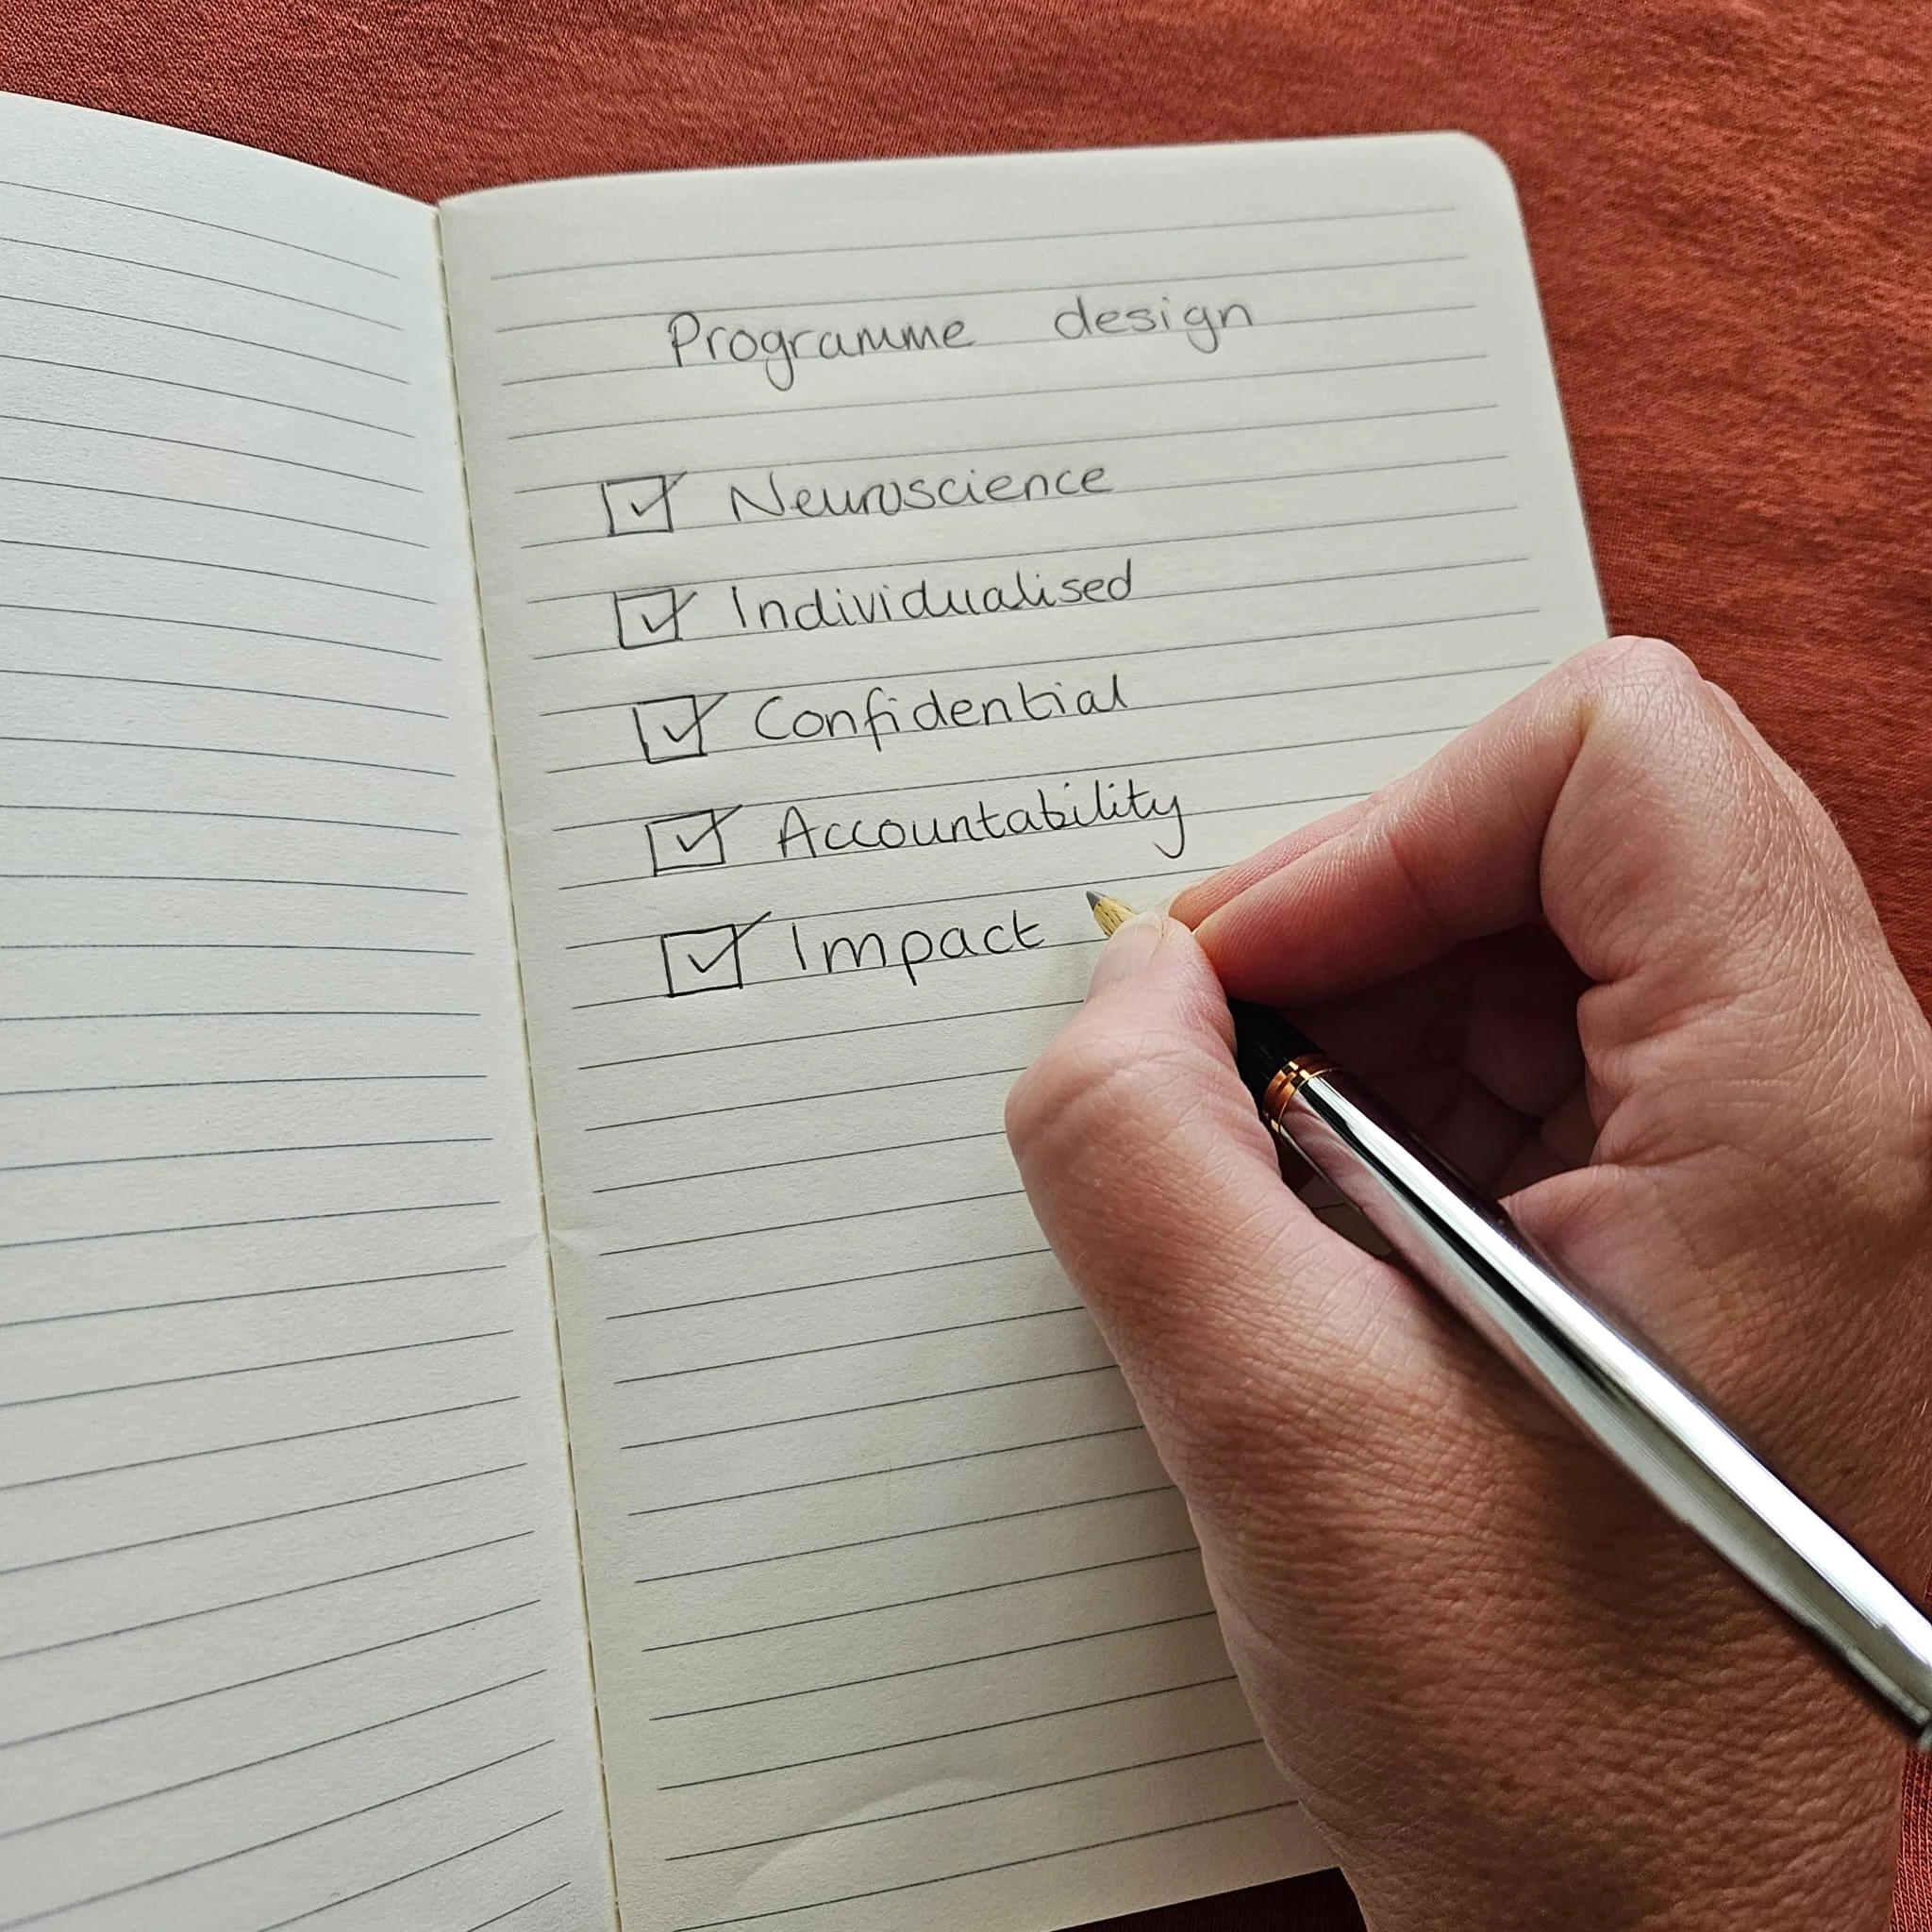 Programme design
☑ Neuroscience
☑ Individualised
☑ Confidential
☑ Accountability
☑ Impact